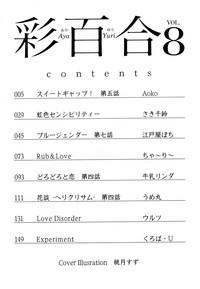 彩百合 VOL.8
あや Aya ゆり Yuri
contents
005 スイートギャップ! 第五話 Aoko
029 虹色センシビリティー さき千鈴
045 ブルージェンダー 第七話 江戸屋ぽち
073 Rub&Love ちゃ〜り〜
093 どろどろと恋 第四話 牛乳リンダ
111 花談 -ヘリクリサム- 第四話 うめ丸
131 Love Disorder ウルツ
149 Experiment くろば・U
Cover Illusration 桃月すず